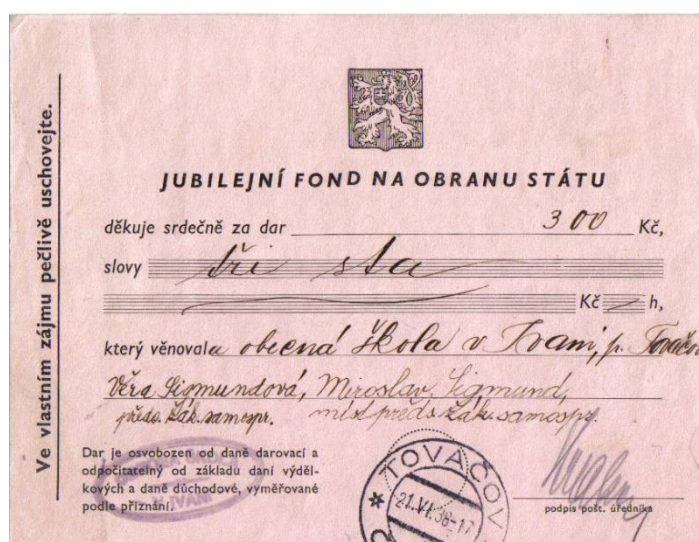 Ve vlastním zájmu pečlivě uschovejte.
JUBILEJNÍ FOND NA OBRANU STÁTU
děkuje srdečně za dar 300 Kč,
slovy tři sta
Kč — h,
který věnovala obecná škola v Ivani, p. Tovačov
Věra Sigmundová, Miroslav Sigmund,
předs. žák. samospr. míst. předs. žák. samospr.
Dar je osvobozen od daně darovací a
odpočitatelný od základu daní výděl-
kových a daně důchodové, vyměřované
podle přiznání.
TOVAČOV
21.VI.38-17
2
podpis pošt. úředníka